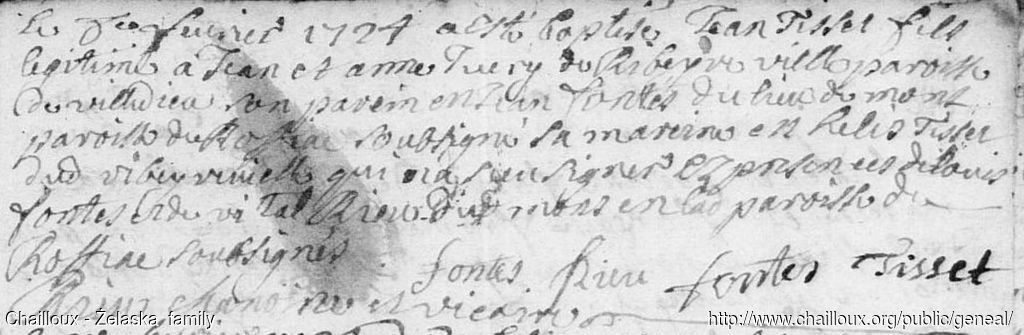 Le 7e fevrier 1724 a esté baptisé Jean Tisset fils
legitime a Jean et anne Tuery de Ribeyrevielle paroisse
de villedieu son parein est Jean fontes du lieu de mont
paroisse de Roffiac soubsigné sa mareine est helis Tisset
dud ribeyrevielle qui n'a sceu signer Ez presences de Louis
fontes et de vital Rieu dud mons en lad paroisse de
Roffiac soubsignés
fontes Rieu fontes Tisset
et vicaire
Chailloux - Żelaska family
http://www.chailloux.org/public/geneal/